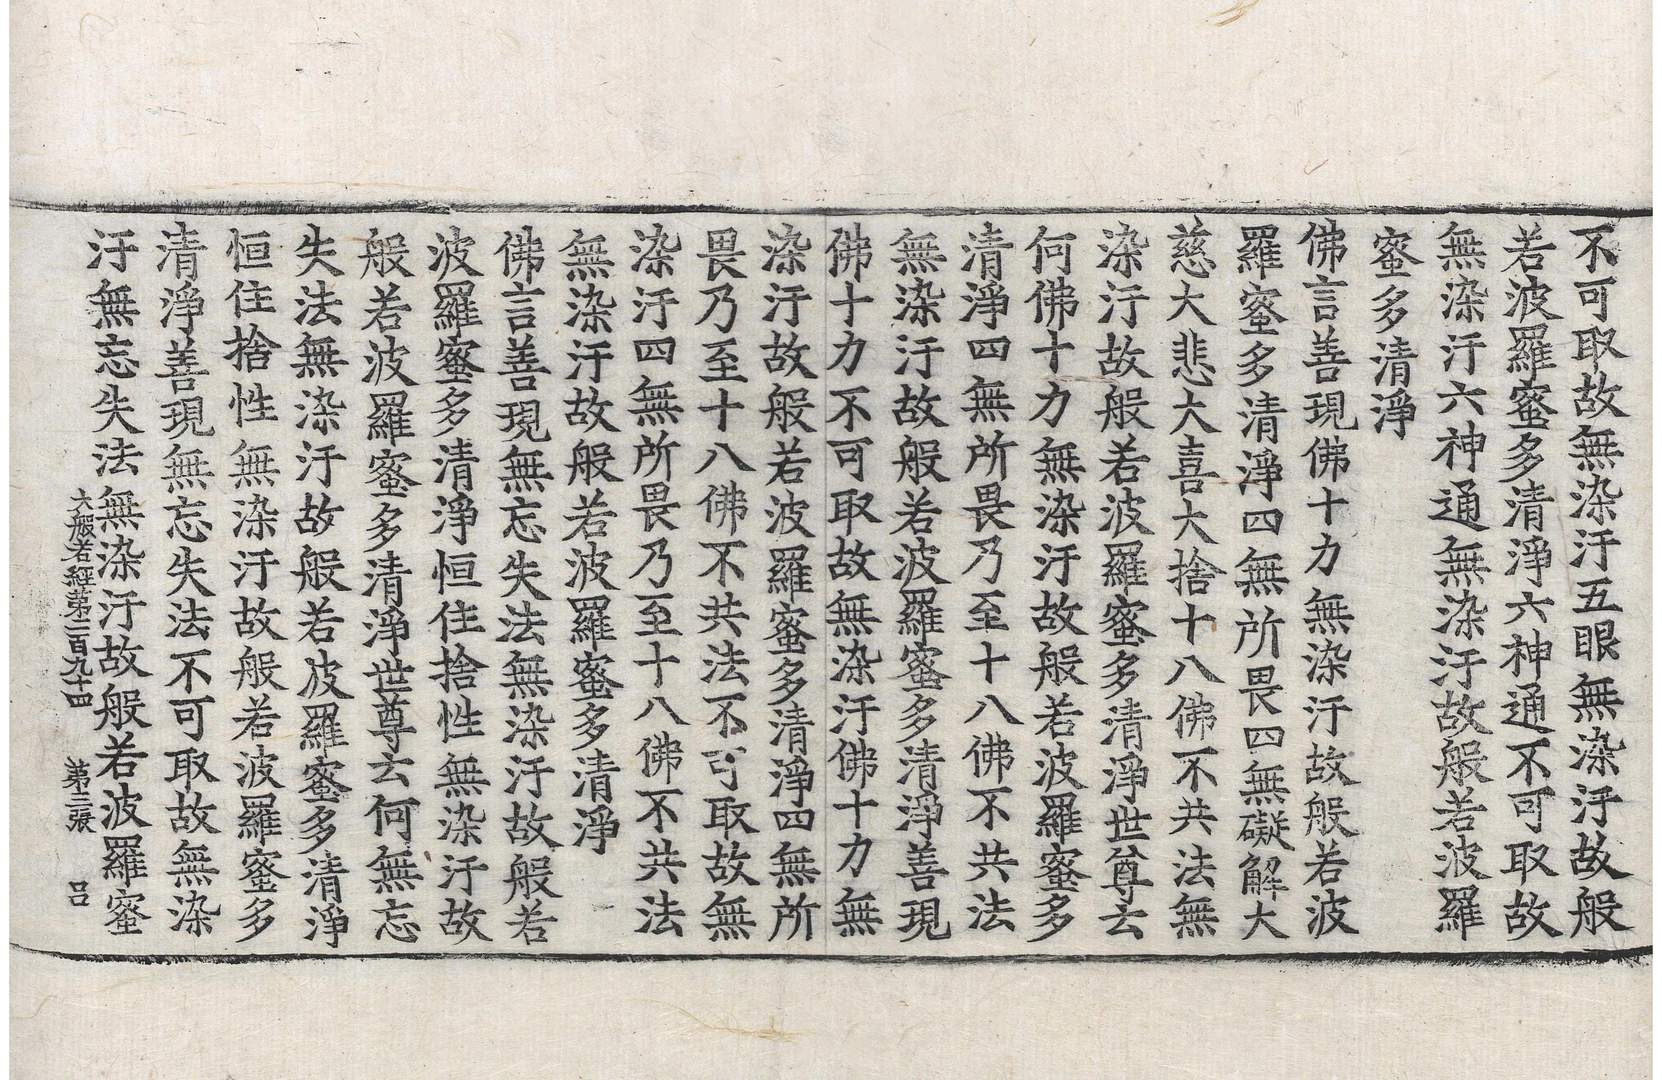 不可取故無染汙五眼無染汙故般
若波羅蜜多清淨六神通不可取故
無染汙六神通無染汙故般若波羅
蜜多清淨
佛言善現佛十力無染汙故般若波
羅蜜多清淨四無所畏四無礙解大
慈大悲大喜大捨十八佛不共法無
染汙故般若波羅蜜多清淨世尊云
何佛十力無染汙故般若波羅蜜多
清淨四無所畏乃至十八佛不共法
無染汙故般若波羅蜜多清淨善現
佛十力不可取故無染汙佛十力無
染汙故般若波羅蜜多清淨四無所
畏乃至十八佛不共法不可取故無
染汙四無所畏乃至十八佛不共法
無染汙故般若波羅蜜多清淨
佛言善現無忘失法無染汙故般若
波羅蜜多清淨恒住捨性無染汙故
般若波羅蜜多清淨世尊云何無忘
失法無染汙故般若波羅蜜多清淨
恒住捨性無染汙故般若波羅蜜多
清淨善現無忘失法不可取故無染
汙無忘失法無染汙故般若波羅蜜
大般若經第二百九十四 第三張 呂